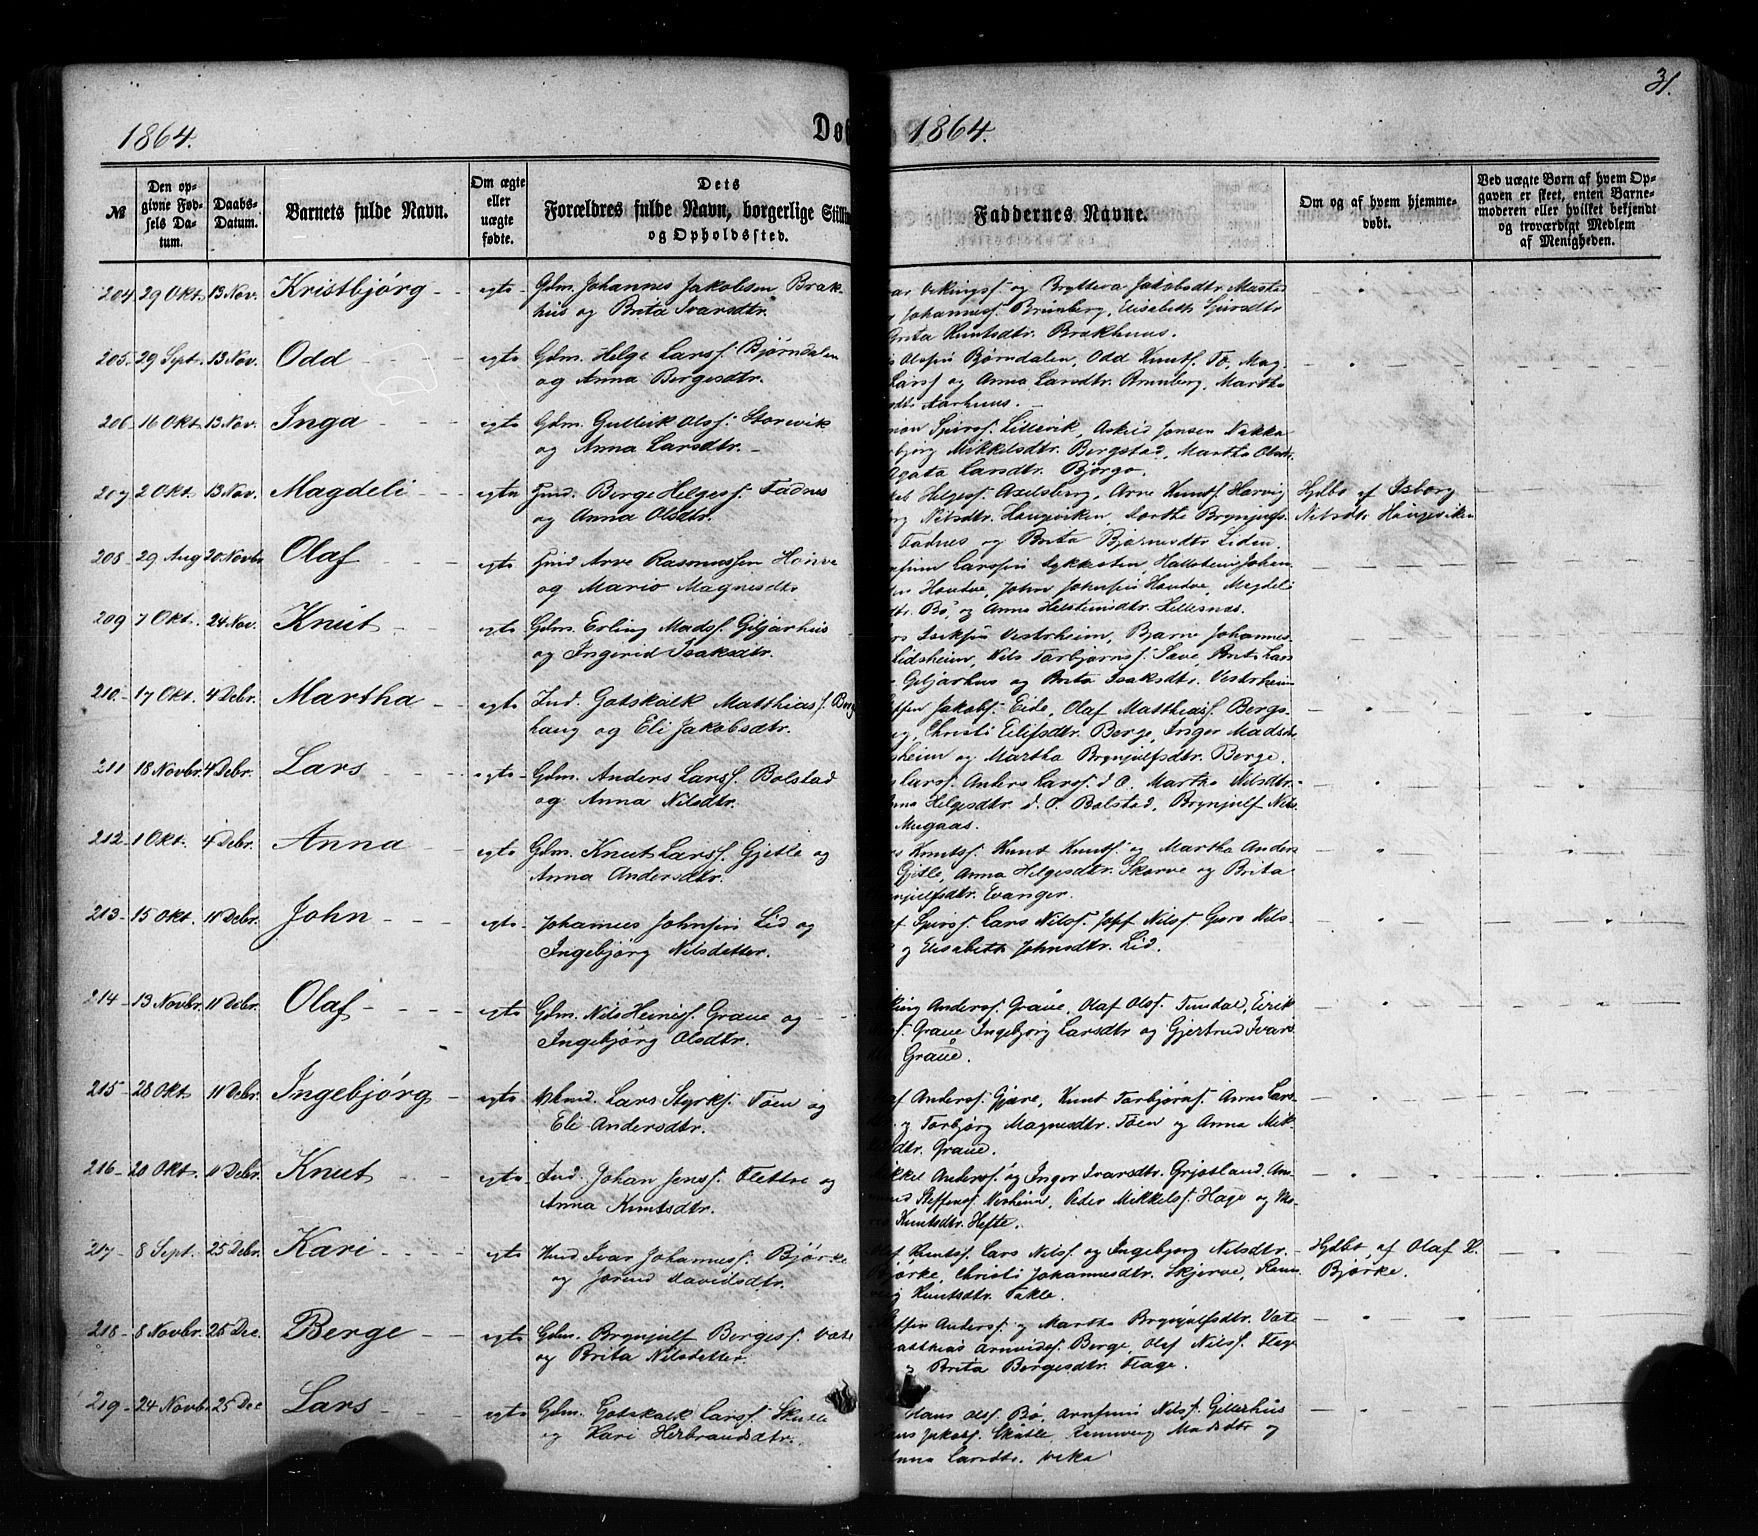 31.
1864.
Dø
1864.
№
Den op-
givne Fød-
sels Da-
tum.
Daabs-
Datum.
Barnets fulde Navn.
Om ægte
eller
uægte
fødte.
Dets
Forældres fulde Navn, borgerlige Stillin
og Opholdssted.
Faddernes Navne.
Om og af hvem hjemme-
døbt.
Ved uægte Børn af hvem Op-
gaven er skeet, enten Barne-
moderen eller hvilket bekjendt
og troværdigt Medlem
af Menigheden.
204 29 Okt. 13 Nov. Kristbjørg - egte Gdm. Johannes Jakobsen Brak-
hus og Brita Ivarsdtr.
Vikingsf. og Brytteva Jakobsdtr. Mastad
Johannesf. Brunberg, Elisabeth Sjursdtr
Brita Knutsdtr. Brakhuus.
205 29 Sept. 13 Nov. Odd - egte Gdm. Helge Larsf. Bjørndalen
og Anna Bergesdtr.
Olsfin Bjørndalen, Odd Knutsf. Tø, Mag-
Larsf og Anna Larsdtr. Brunberg, Martha
Aarhuus. -
206 16 Okt. 13 Nov. Inga - egte Gdm. Gullvik Olsf. Storevik
og Anna Larsdtr. -
Sjursf. Lillevik, Askild Jonsen Nakka
bjørg Mikkelsdtr. Bergstad, Martha Olsdtr.
Agata Larsdtr. Bjørgo.
207 2 Okt. 13 Nov. Magdeli - egte Ind. Berge Helgesf. Fadnes
og Anna Olsdtr.
Helgesf. Axelsberg, Arne Knutsf. Horvig
Nilsdtr. Haugviken, Dorthe Brynjulfs-
Fadnes og Brita Bjarnesdtr. Liden
Hjdbt. af Isborg
Nilsdtr Haugeviken
208 29 Aug 20 Novbr Olaf egte Inds Arve Rasmussen Honve
og Mario Magnesdtr
Larsfin Lykkesten, Hallstein Johan
Hondve, John Johnsfin Hondve, Magdeli
Bø, og Anna Helsteinsdtr. Hellesnæs.
209 7 Okt. 24 Nov. Knut - egte Gdm. Erling Madsf. Giljarhus
og Ingerid Isaksdtr.
Isaksfin Vestrheim, Bjarne Johannes-
Lidsheim, Nils Torbjørnsf. Save, Brita Lars
Giljarhus og Brita Isaksdtr. Vestrheim
210 17 Okt. 4 Debr. Martha - egte Ind. Gotskalk Matthiasf. Berg
haug og Eli Jakobsdtr.
Jakobsf. Eide, Olaf Matthiasf. Bergs-
Christi Eilifsdtr. Berge, Inger Madsdtr
heim og Martha Brynjulfsdtr. Berge.
211 18 Novbr. 4 Debr. Lars - egte Gdm. Anders Larsf. Bolstad
og Anna Nilsdtr.
Larsf. Anders Larsf. d. O. Martha Nilsdtr.
Helgesdtr. d. O. Bolstad, Brynjulf Nils
Mugaas.
212 1 Okt. 4 Debr. Anna - egte Gdm. Knut Larsf. Gjetle og
Anna Andersdtr.
Knutsf. Knut Knutsf. og Martha Anders
Gjetle, Anna Helgesdtr. Skorve og Brita
julfsdtr. Evanger.
213 15 Okt. 11 Debr. John - egte Johannes Johnsfin Lid og
Ingebjørg Nilsdatter.
Sjursf. Lars Nilsf. Nilsf. Guro Nils-
og Elisabeth Johnsdtr. Lid.
214 13 Novbr. 11 Debr. Olaf - egte Gdm. Nils Heinesf. Graue og
Ingebjørg Olsdtr.
king Andersf. Graue, Olaf Olsf. Tunsdal, Eirik
Graue Ingebjørg Larsdtr og Gjertrud Ivars
Graue.
215 28 Okt 11 Debr. Ingebjørg - egte Lars Styrksf. Tøen og
Eli Andersdtr.
Andersf. Gjære, Knut Torbjørnsf. Anna Lars-
Torbjørg Magnesdtr. Tøen og Anna Mik-
dtr. Graue.
216 20 Okt 11 Debr. Knut egte Ind. Johan Jensf. Flettre og
Anna Knutsdtr.
Mikkel Andersf og Inger Ivarsdtr. Grjotland, An-
Steffensf Norheim, Peder Mikkelsf. Hage og Ma-
Knutsdtr. Hefte.
217 8 Sept. 25 Debr. Kari egte Ivar Johannesf. Bjørke
og Jorund Davidsdtr.
Olaf Knutsf. Lars Nilsf og Ingebjørg Nilsdtr.
Bjørke, Christi Johannesdtr. Skjerve, Ran-
veig Knutsdtr. Takle.
Hjdbt. af Olaf K.
Bjørke.
218 8 Novbr. 25 Dec. Berge - egte Gdm. Brynjulf Bergesf. Væte
og Brita Nilsdatter
Steffin Andersf og Martha Brynjulfsdtr. Væte
Matthias Arnvidsf. Berge, Olaf Nilsf. Flage
og Brita Bergesdtr. Flage.
219 24 Novbr. 25 Dec Lars - egte Gdm. Gotskalk Larsf. Skutle
og Kari Herbrandsdtr.
Hans Olsf. Bø, Arnfinn Nilsf. Gillerhus
Jakobsf. Skutle, Rannveig Madsdtr og
Anna Larsdtr. Væka